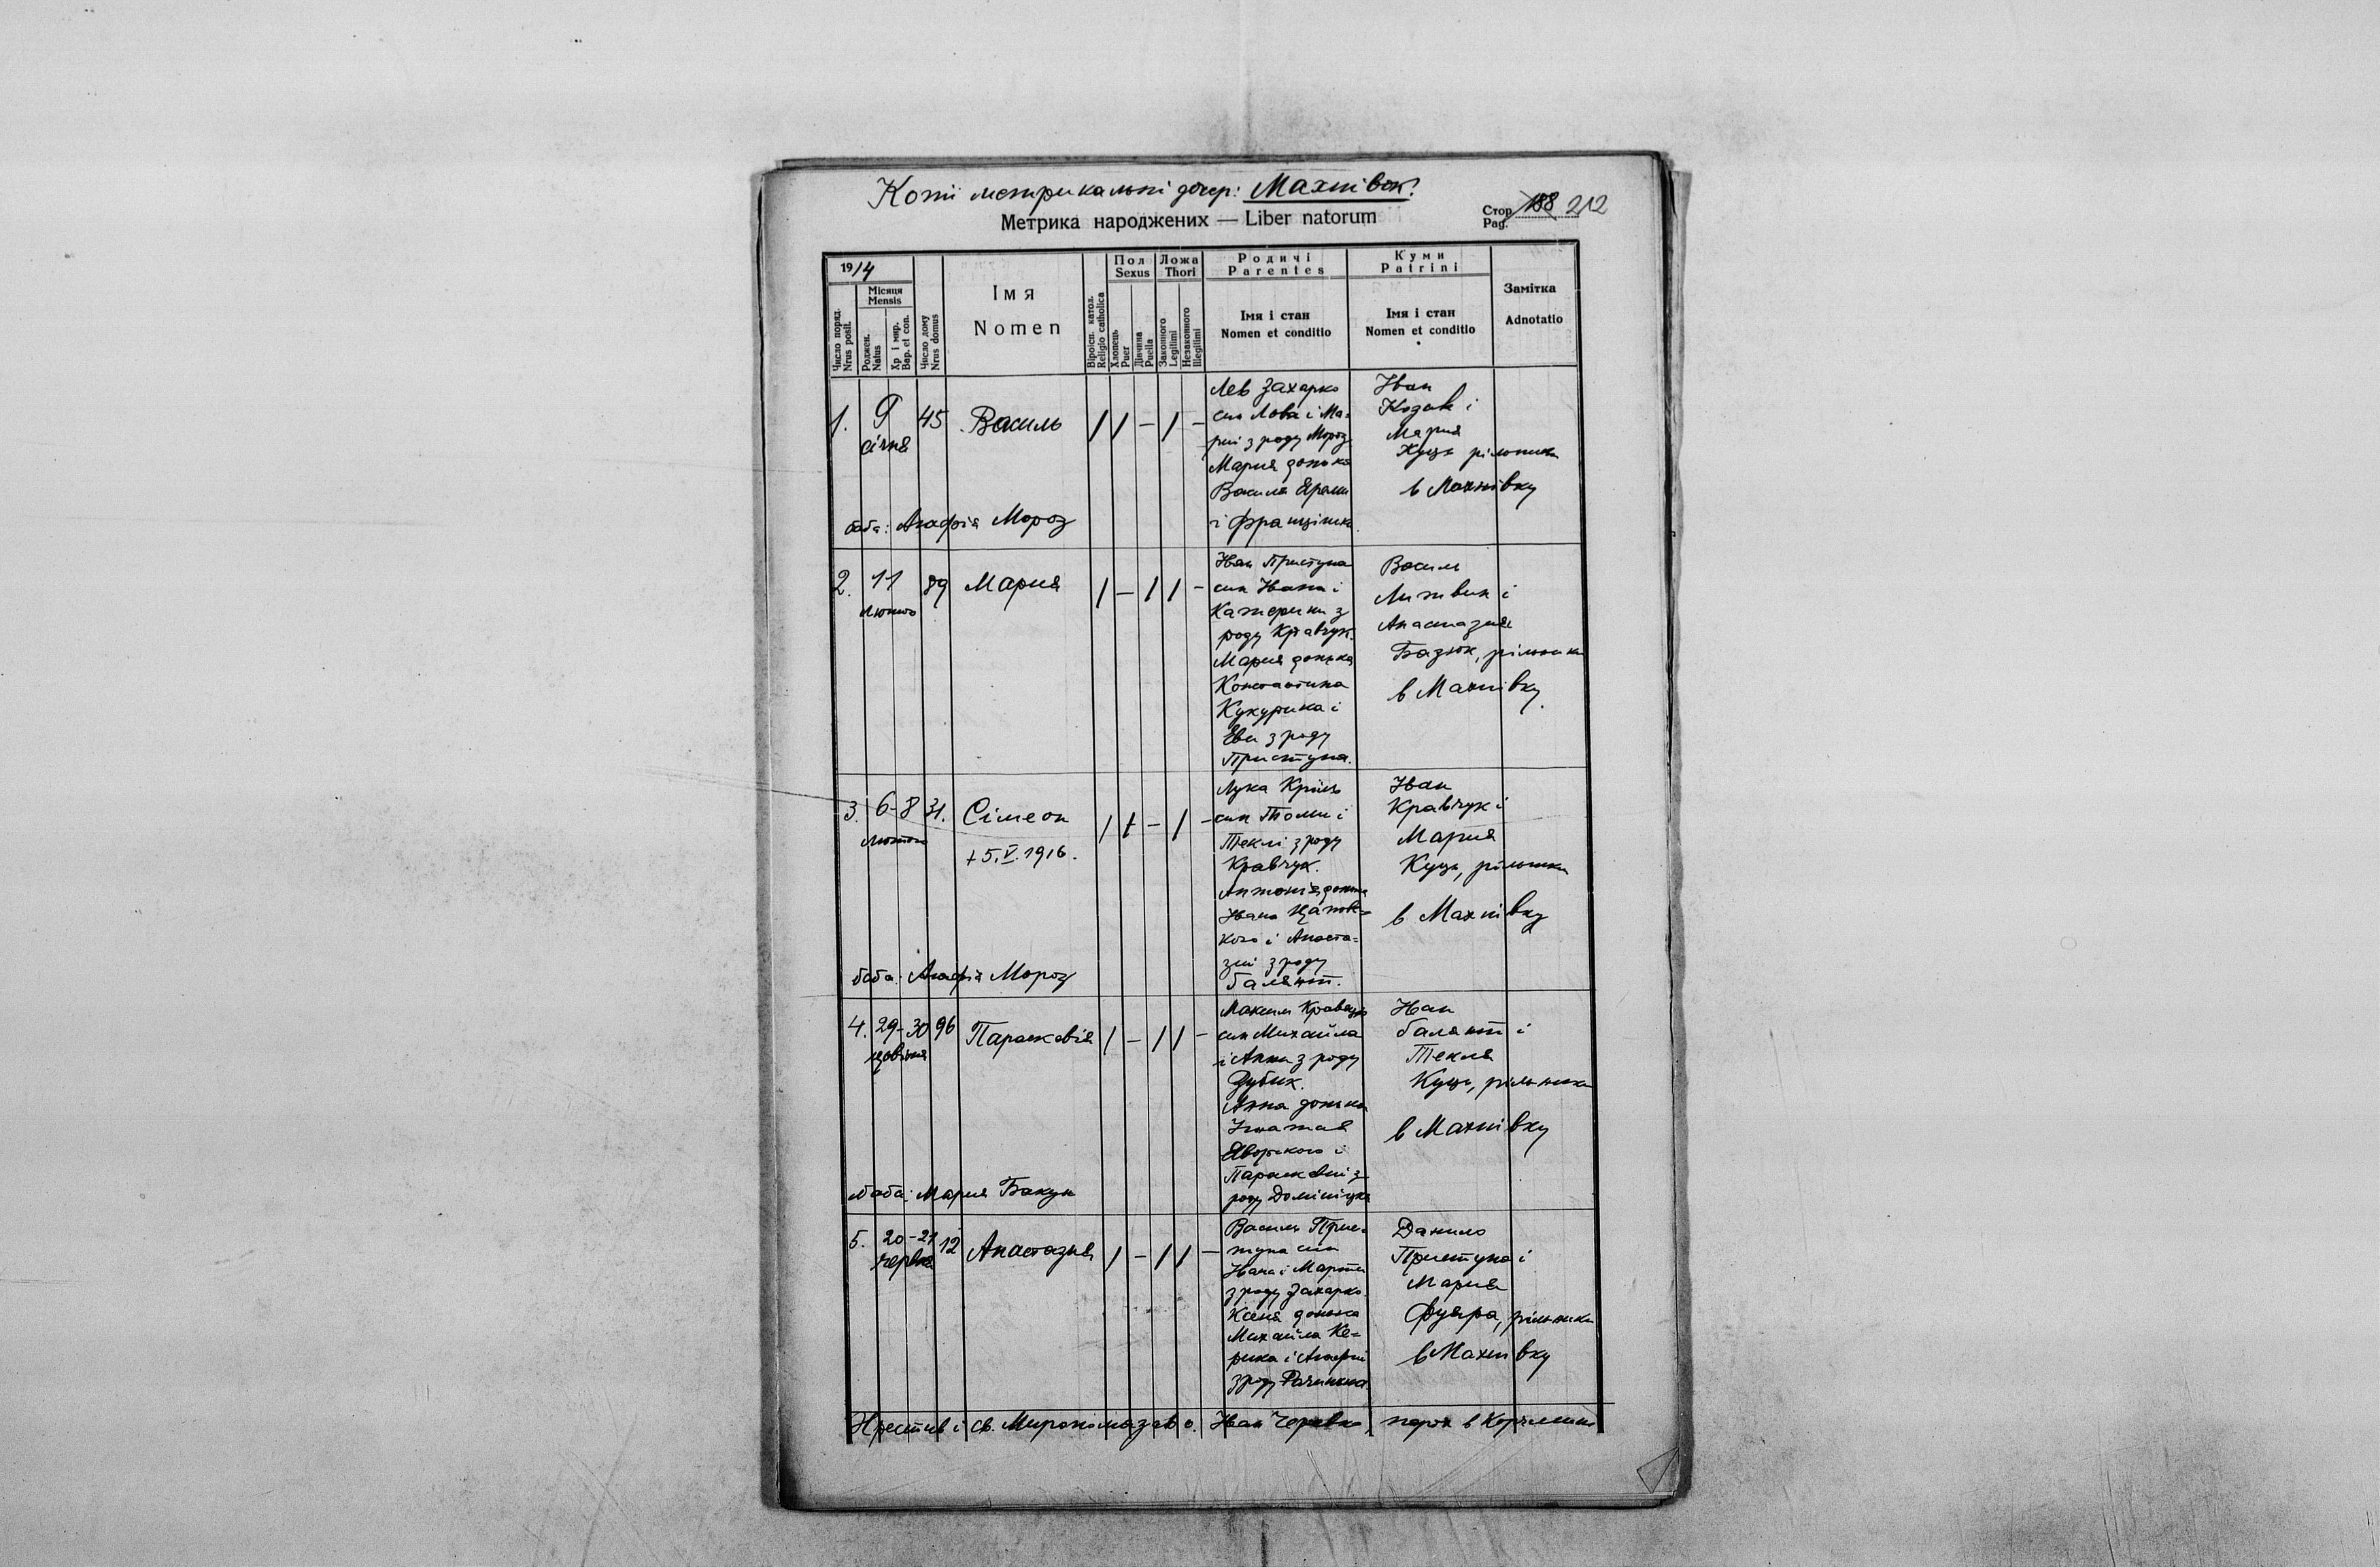 Копії метрикальні дочер: Махнівок.
Метрика народжених — Liber natorum
Стор. Pag. 188 212
1914
Число поряд. Nrus posit.
Місяця Mensis
Роджен. Natus
Хр і мир. Bap. et con.
Число дому Nrus domus
Імя
Nomen
Віроісп. катол. Religio catholica
Пол Sexus
Хлопець Puer
Дівчина Puella
Ложа Thori
Законного Legitimi
Незаконного Illegitimi
Родичі
Parentes
Імя і стан
Nomen et conditio
Куми
Patrini
Імя і стан
Nomen et conditio
Замітка
Adnotatio
1. 9 січня 45 Василь / / – / –
Лев Захарко
син Лева і Ма-
риї з роду Мороз
Мария донька
Василя
і Францішки
Іван
Козак і
Мария
Куць рільники
в Махнівку
баба: Агафія Мороз
2. 11 лютого 89 Мария / – / / –
Іван Приступа
син Івана і
Катерини з
роду Кравчук.
Мария донька
Константина
Кукурика і
Еви з роду
Приступа.
Василь
Литвин і
Анастазия
Базюк, рільники
в Махнівку.
3. 6-8 лютого 31. Сімеон / / – / –
+ 5.V.1916.
Лука Кріль
син Томи і
Теклі з роду
Кравчук.
Антонія донька
Івана
кого і Анаста-
зиї з роду
Балянт.
Іван
Кравчук і
Мария
Куць, рільники
в Махнівку
баба: Агафія Мороз
4. 29-30 цвітня 96 Параскевія / – / / –
Максим
син Михайла
і Анни з роду
Дубик.
Анна донька
Ігнатия
Яворского і
Параскевії з
роду
Іван
Балянт і
Текля
Куць, рільники
в Махнівку
баба: Мария Бакун
5. 20-21 червня 12 Анастазия / – / / –
Василь Прис-
тупа син
Івана і Марти
з роду Захарко.
Ксеня донька
Михайла Ке-
рика і Агафії
з роду
Данило
Приступа і
Мария
Фуяра, рільники
в Махнівку
Хрестив і св. Миропомазав о. Іван Черевко, парох в